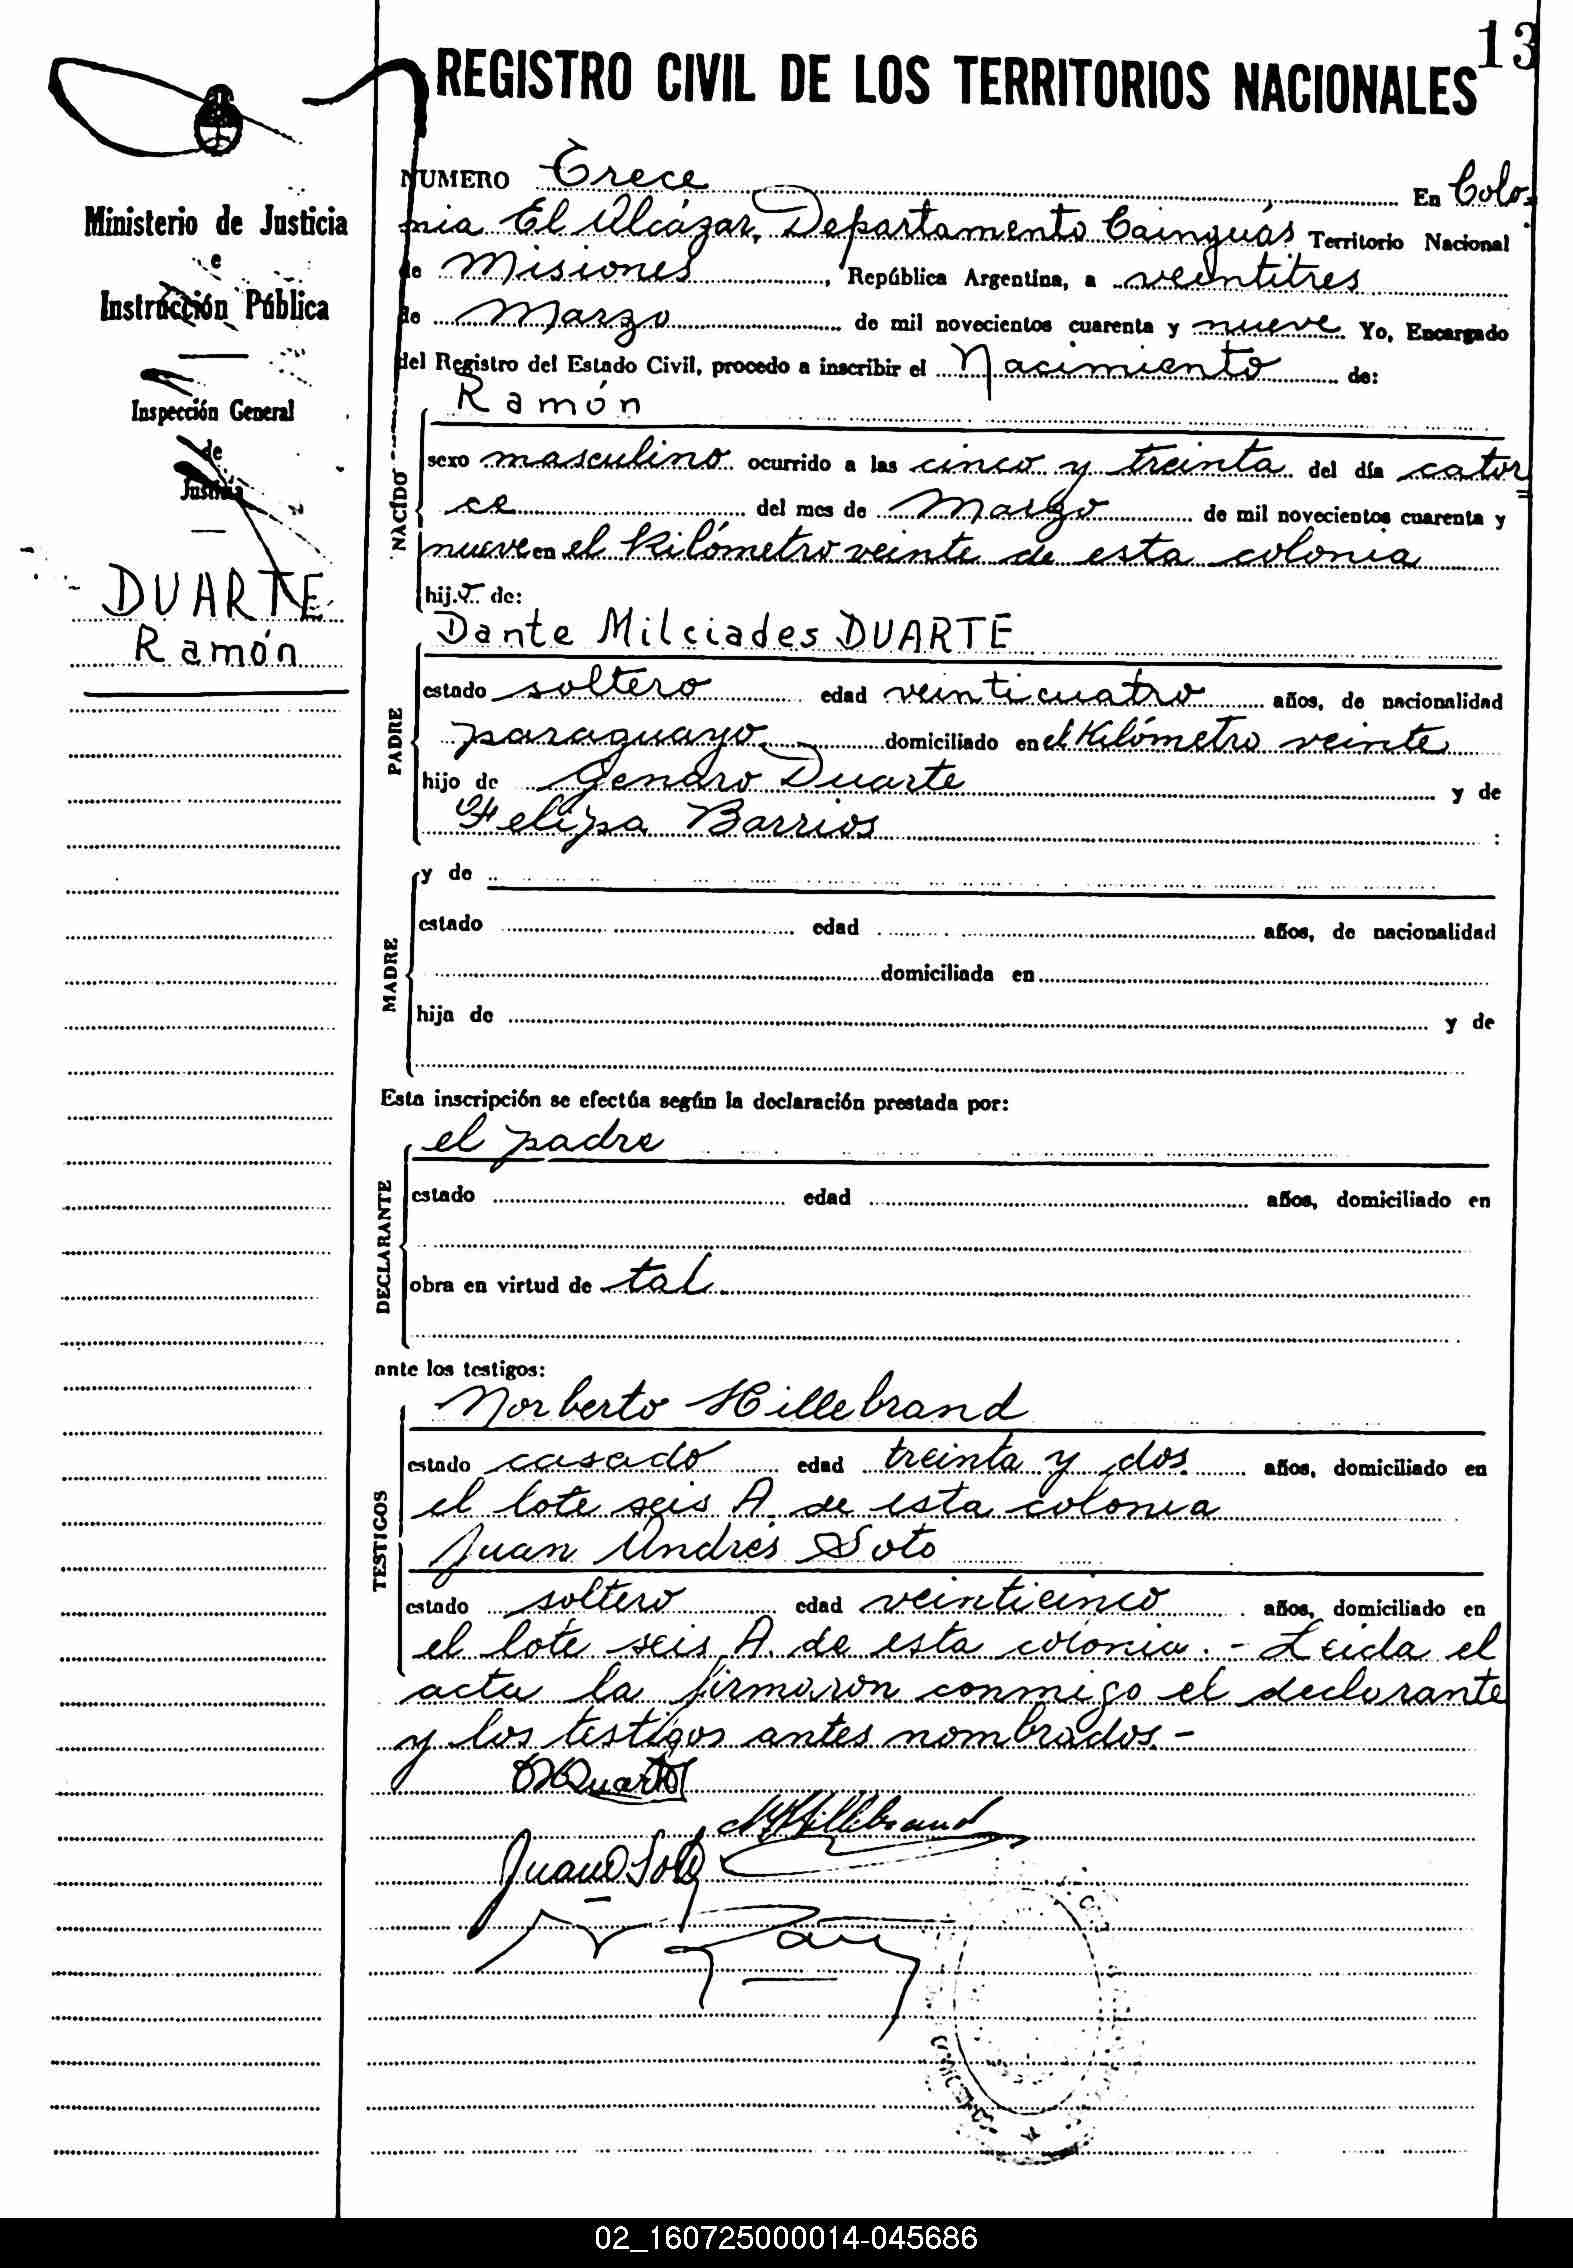 13
REGISTRO CIVIL DE LOS TERRITORIOS NACIONALES
Ministerio de Justicia
e
Instrucción Pública
Inspección General
de
Justicia
DUARTE
Ramón
NUMERO Trece En Colo-
nia El Alcázar, Departamento Cainguás Territorio Nacional
de Misiones, República Argentina, a veintitres
de Marzo de mil novecientos cuarenta y nueve Yo, Encargado
del Registro del Estado Civil, procedo a inscribir el Nacimiento de:
NACIDO
Ramón
sexo masculino ocurrido a las cinco y treinta del día cator=
ce del mes de Marzo de mil novecientos cuarenta y
nueve en el kilómetro veinte de esta colonia
hij.o de:
PADRE
Dante Milciades DUARTE
estado soltero edad veinticuatro años, de nacionalidad
paraguayo domiciliado en el Kilómetro veinte
hijo de Genaro Duarte y de
Felipa Barrios :
MADRE
y de
estado edad años, de nacionalidad
domiciliada en
hija de y de
Esta inscripción se efectúa según la declaración prestada por:
DECLARANTE
el padre
estado edad años, domiciliado en
obra en virtud de tal
ante los testigos:
TESTIGOS
Norberto Hillebrand
estado casado edad treinta y dos años, domiciliado en
el lote seis A. de esta colonia
Juan Andrés Soto
estado soltero edad veinticinco años, domiciliado en
el lote seis A. de esta colonia. - Leida el
acta la firmaron conmigo el declarante
y los testigos antes nombrados. -
DMDuarte
NHillebrand
Juan A Soto
02_160725000014-045686